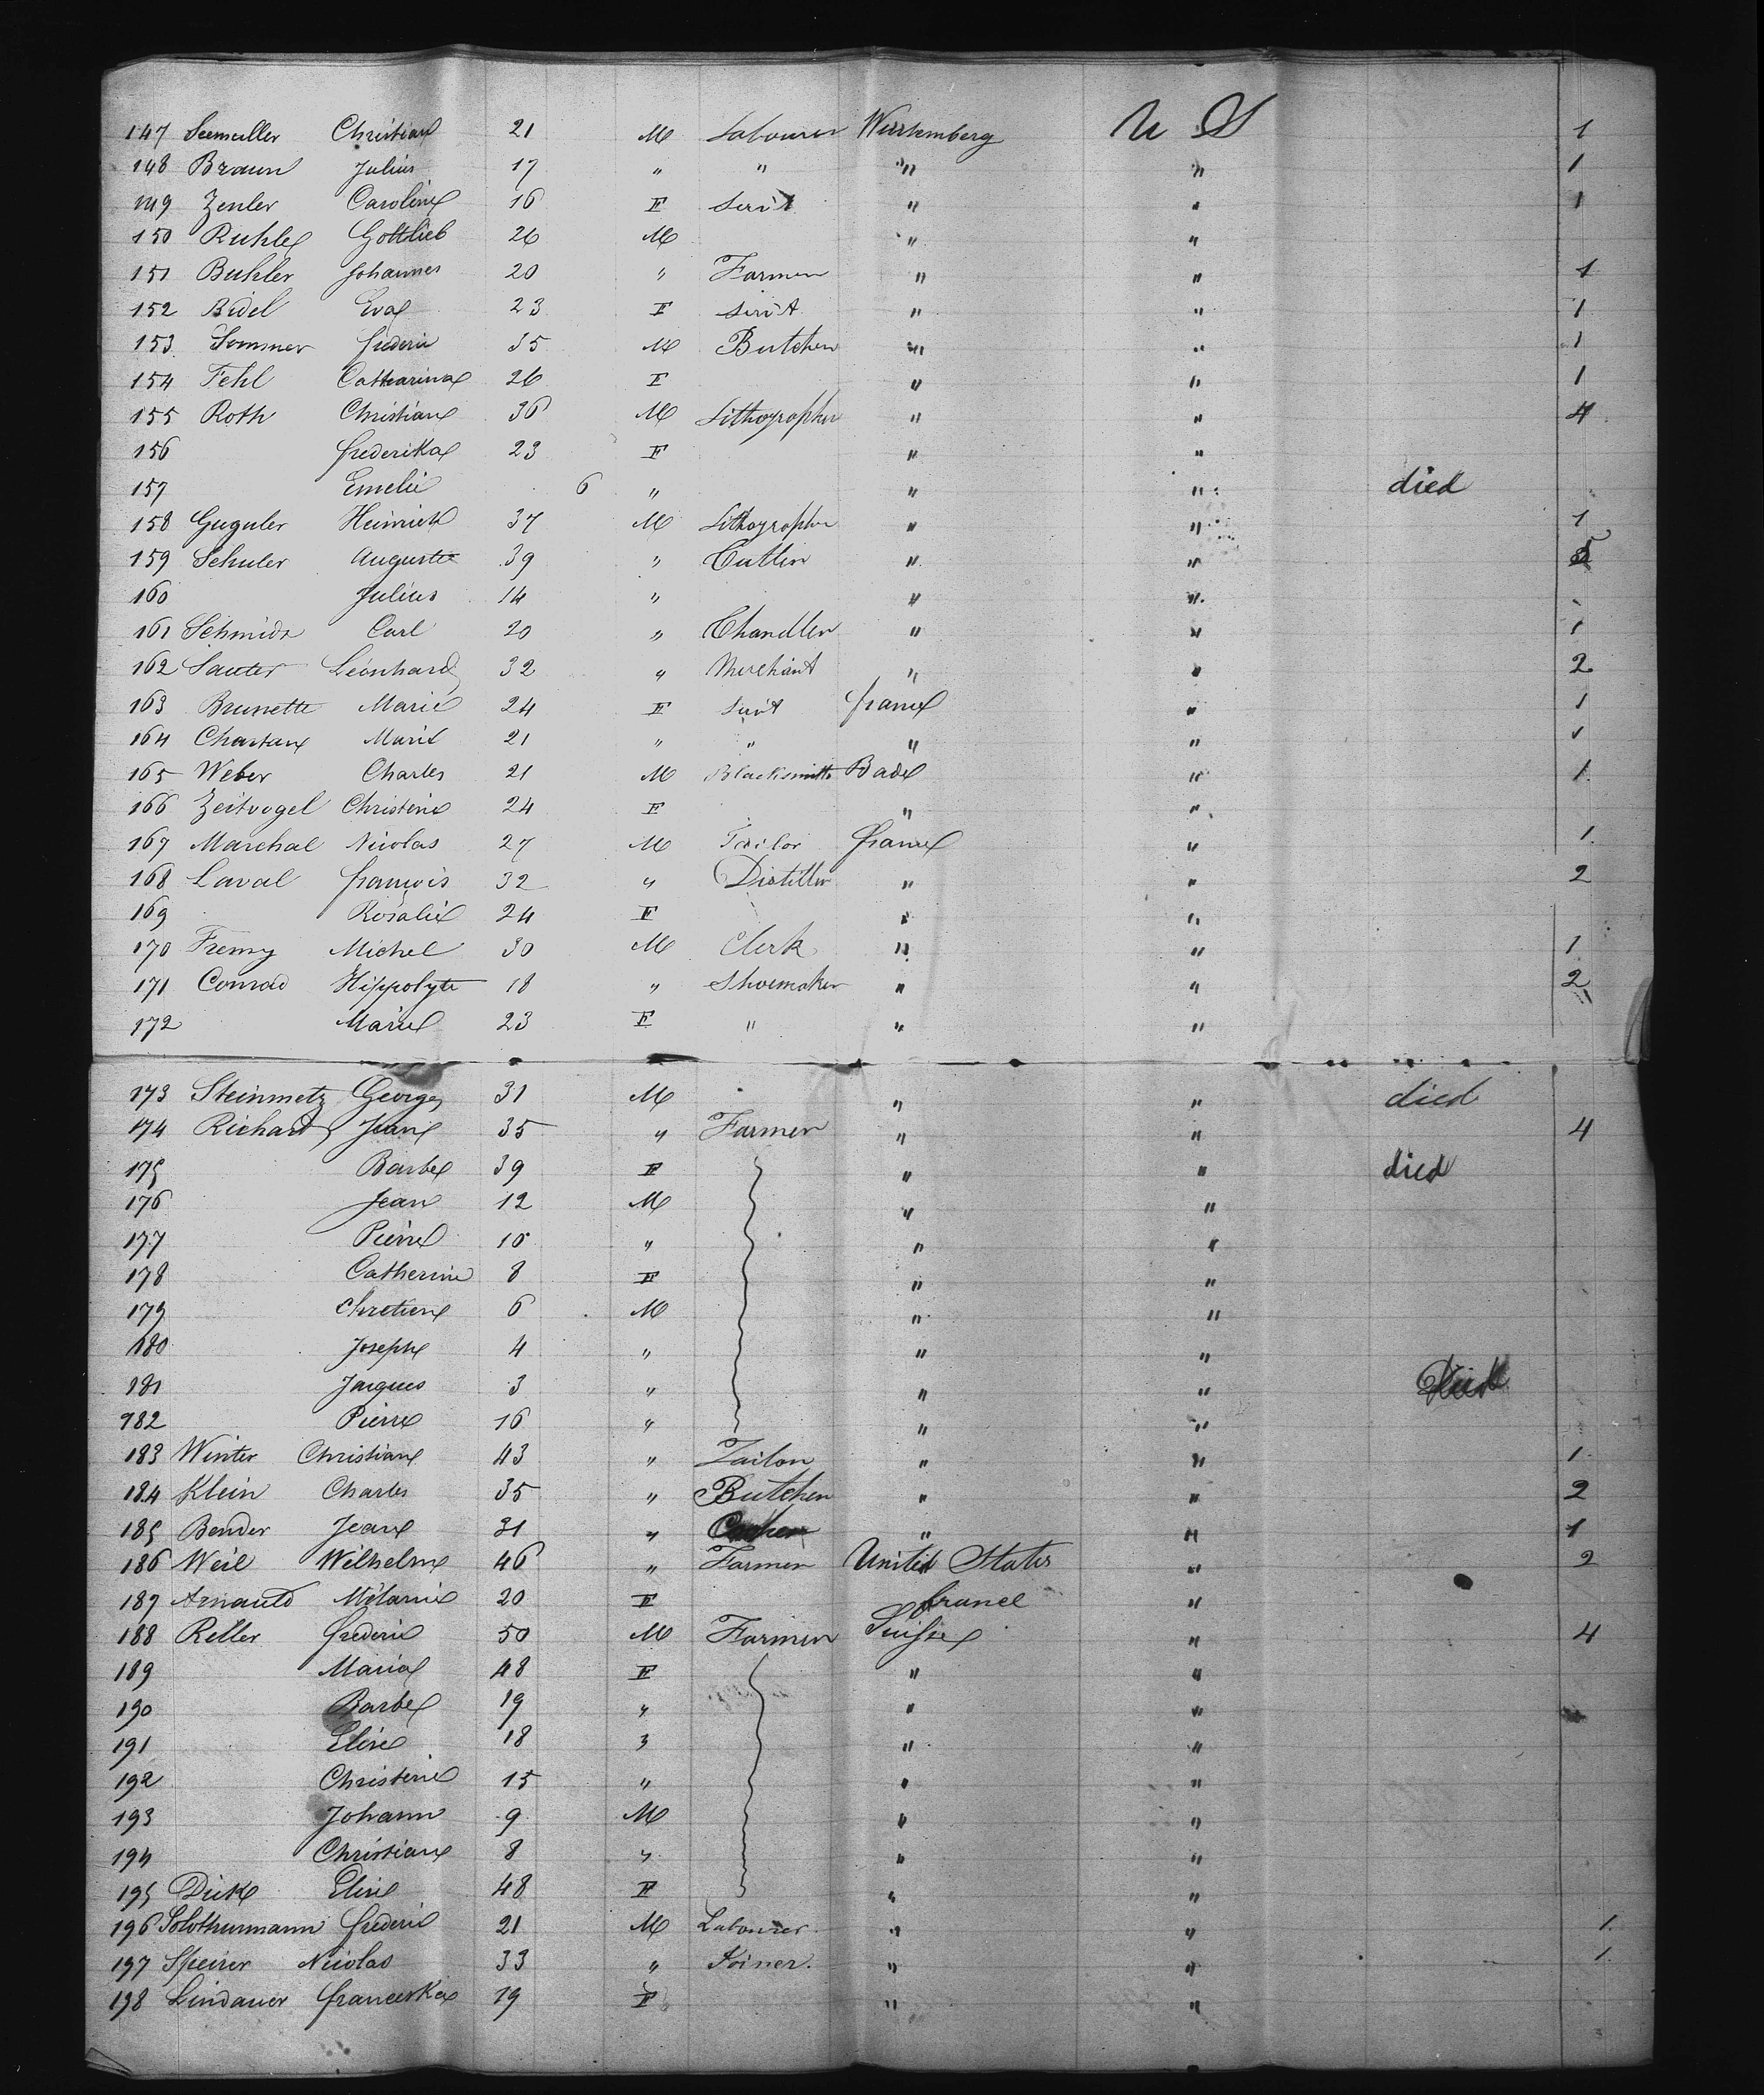 147 Seemuller Christian 21 M Labourer Wurtemberg U S 1
148 Braun Julius 17 " " " " 1
149 Zenler Caroline 16 F Servt " " 1
150 Ruhle Gottlieb 26 M " "
151 Buhler Johannes 20 " Farmer " " 1
152 Bidel Eva 23 F Servt " " 1
153 Sommer frederic 35 M Butcher " " 1
154 Fehl Catharina 26 F " " 1
155 Roth Christian 36 M Lithographer " " 4
156 frederika 23 F " "
157 Emelie 6 " " " died
158 Guguler Heinrich 37 M Lithographer " " 1
159 Schuler Auguste 39 " Cutler " " 5
160 Julius 14 " " "
161 Schmidt Carl 20 " Chandler " " 1
162 Sauter Léonhard 32 " Merchant " " 2
163 Brunette Marie 24 F Servt france " 1
164 Marie 21 " " " " 1
165 Weber Charles 21 M Blacksmith Bade " 1
166 Zeitvogel Christine 24 F " "
167 Marchal Nicolas 27 M Tailor france " 1
168 Laval françois 32 " Distiller " " 2
169 Rosalie 24 F " "
170 Fremy Michel 30 M Clerk " " 1
171 Conrad Hippolyte 18 " Shoemaker " " 2
172 Marie 23 F " " "
173 Steinmetz Georges 31 M " " died
174 Richard Jean 35 " Farmer " " 4
175 Barbe 39 F " " died
176 Jean 12 M " "
177 Pierre 10 " " "
178 Catherine 8 F " "
179 Chretien 6 M " "
180 Joseph 4 " " "
181 Jacques 3 " " " Died
182 Pierre 16 " " "
183 Winter Christian 43 " Tailor " " 1
184 Klein Charles 35 " Butcher " " 2
185 Bender Jean 31 " " " 1
186 Weil Wilhelm 46 " Farmer United States " 2
187 Arnauld Mélanie 20 F france "
188 Reller frederic 50 M Farmer Suisse " 4
189 Maria 48 F " "
190 Barbe 19 " " "
191 Elise 18 " " "
192 Christine 15 " " "
193 Johann 9 M " "
194 Christian 8 " " "
195 Dick Elise 48 F " "
196 Solothurmann frederic 21 M Labourer " " 1
197 Speirer Nicolas 33 " Joiner " " 1
198 Lindauer franceska 19 F " "